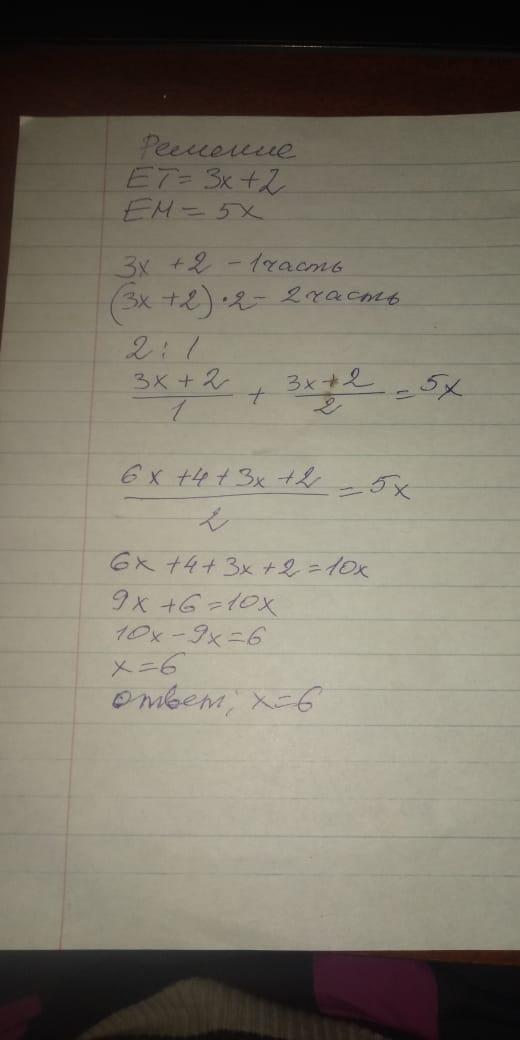 Решение
ET = 3x + 2
EM = 5x
3x + 2 - 1 часть
(3x + 2) · 2 - 2 часть
2 : 1
(3x + 2)/1 + (3x + 2)/2 = 5x
(6x + 4 + 3x + 2)/2 = 5x
6x + 4 + 3x + 2 = 10x
9x + 6 = 10x
10x - 9x = 6
x = 6
ответ; x = 6